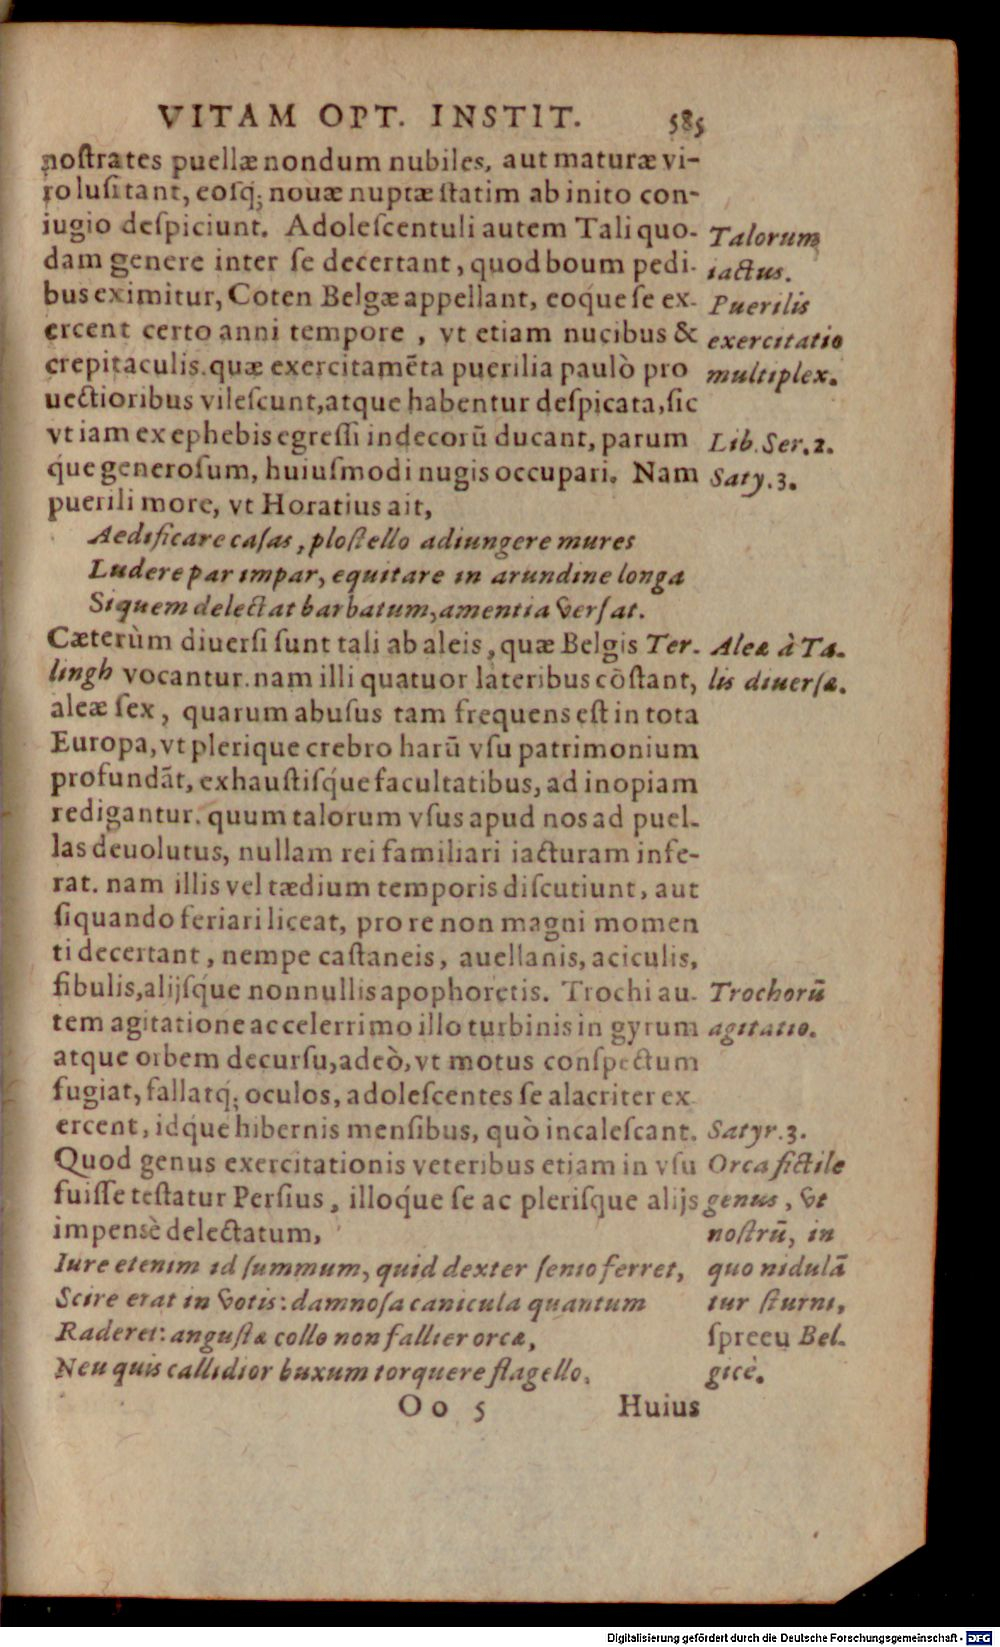 VITAM OPT. INSTIT. 585
noſtrates puellæ nondum nubiles, aut maturæ vi-
ro luſitant, eoſq́; nouæ nuptæ ſtatim ab inito con-
iugio deſpiciunt. Adoleſcentuli autem Tali quo-
dam genere inter ſe decertant, quod boum pedi-
bus eximitur, Coten Belgæ appellant, eoque ſe ex-
ercent certo anni tempore , vt etiam nucibus &
crepitaculis. quæ exercitamẽta puerilia paulò pro
uectioribus vileſcunt, atque habentur deſpicata, ſic
vt iam ex ephebis egreſſi indecorũ ducant, parum
q́ue generoſum, huiuſmodi nugis occupari. Nam
puerili more, vt Horatius ait,
Aedificare caſas, ploſtello adiungere mures
Ludere par impar, equitare in arundine longa
Si quem delectat barbatum, amentia verſat.
Cæterùm diuerſi ſunt tali ab aleis, quæ Belgis Ter-
lingh vocantur. nam illi quatuor lateribus cõſtant,
aleæ ſex, quarum abuſus tam frequens eſt in tota
Europa, vt plerique crebro harũ vſu patrimonium
profundãt, exhauſtiſq́ue facultatibus, ad inopiam
redigantur. quum talorum vſus apud nos ad puel-
las deuolutus, nullam rei familiari iacturam infe-
rat. nam illis vel tædium temporis diſcutiunt, aut
ſiquando feriari liceat, pro re non magni momen
ti decertant, nempe caſtaneis, auellanis, aciculis,
fibulis, alijſq́ue nonnullis apophoretis. Trochi au-
tem agitatione ac celerrimo illo turbinis in gyrum
atque orbem decurſu, adeò, vt motus conſpectum
fugiat, fallatq́; oculos, adoleſcentes ſe alacriter ex
ercent, idq́ue hibernis menſibus, quò incaleſcant.
Quod genus exercitationis veteribus etiam in vſu
fuiſſe teſtatur Perſius, illoq́ue ſe ac pleriſque alijs
impensè delectatum,
Iure etenim id ſummum, quid dexter ſenio ferret,
Scire erat in votis: damnoſa canicula quantum
Raderet: anguſtæ collo non fallier orcæ,
Neu quis callidior buxum torquere flagello.
Oo 5 Huius
Talorum
iactus.
Puerilis
exercitatio
multiplex.
Lib. Ser. 2.
Saty. 3.
Aleæ à Ta-
lis diuerſæ.
Trochorũ
agitatio.
Satyr. 3.
Orca fictile
genus, vt
noſtrũ, in
quo nidulã
tur ſturni,
ſpreeu Bel-
gicè.
Digitalisierung gefördert durch die Deutsche Forschungsgemeinschaft - DFG